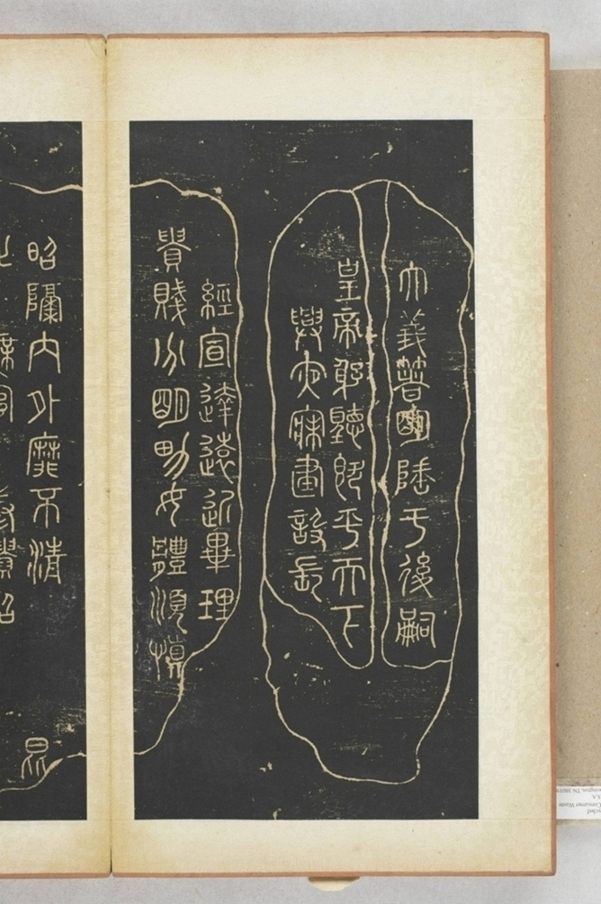 大義箸明陲于後嗣
皇帝躬聽既平天下
興夜寐建設長
經宣達遠近畢理
貴賤分明男女體順慎
昭隔內外靡不清 昆